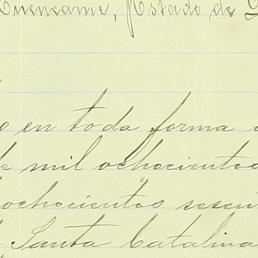 Cuencamé, Estado de
en toda forma
mil ochocientos
ochocientos sesen
Santa Catalina